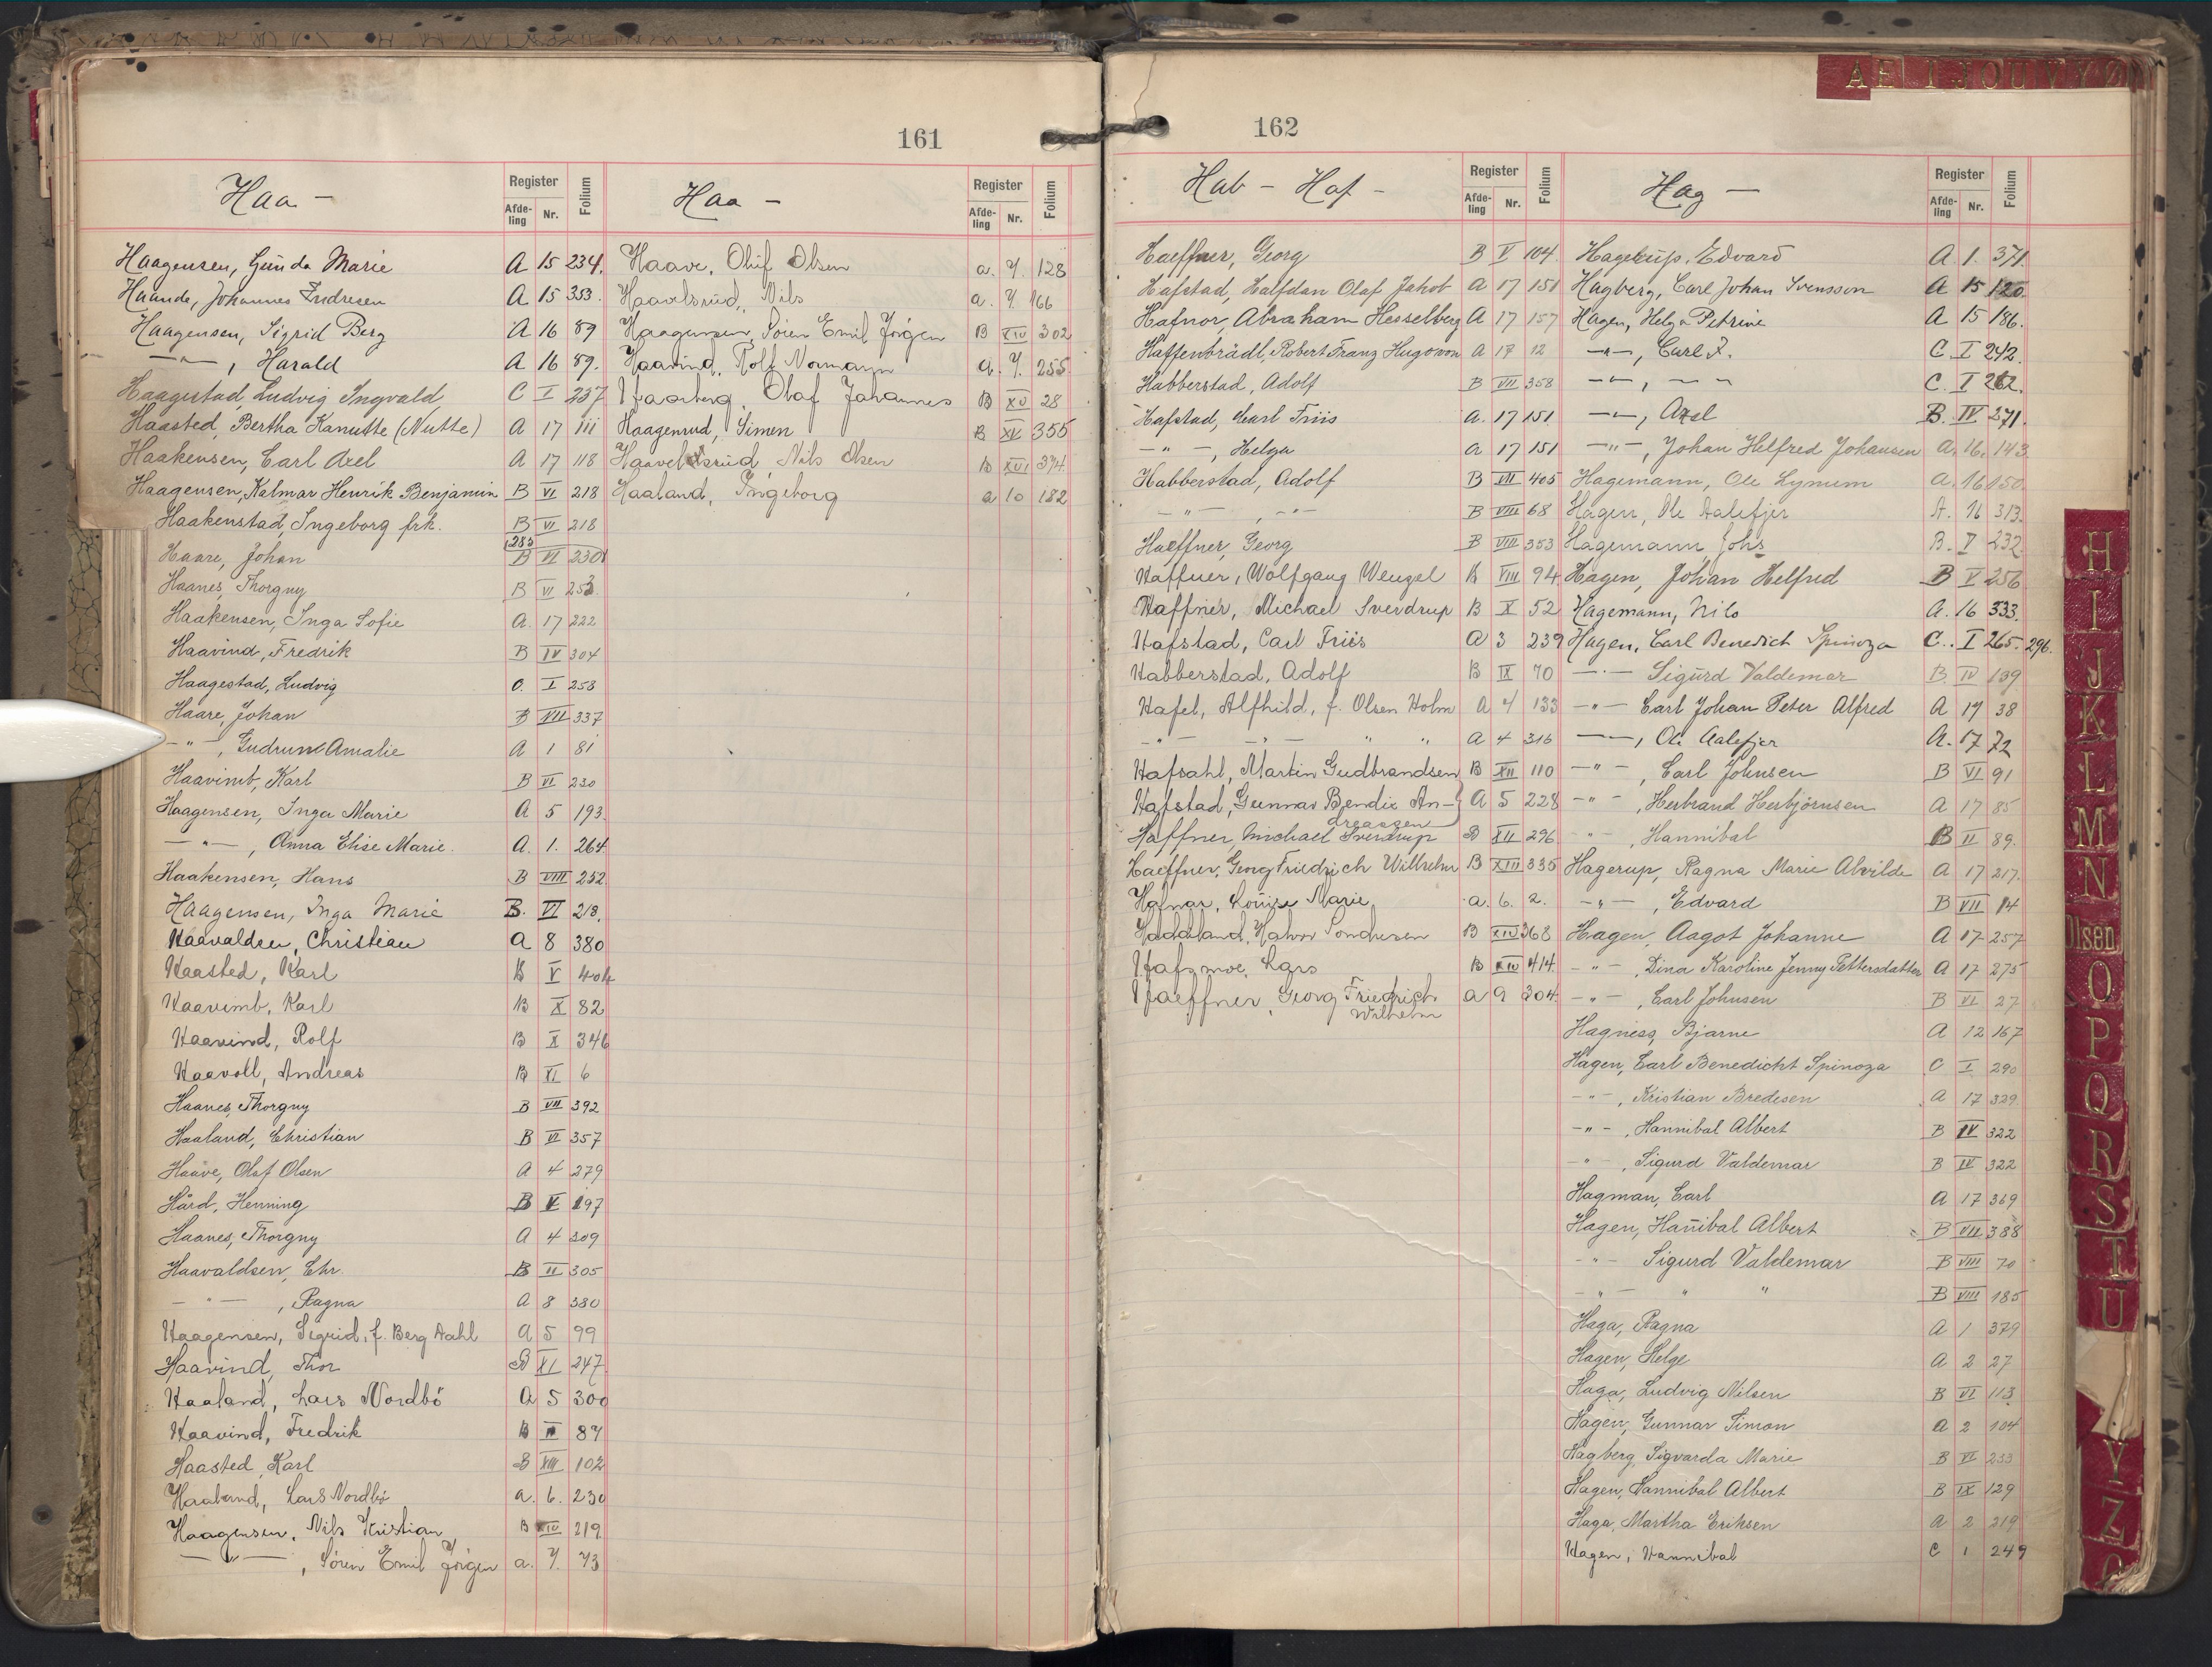 161
Haa –
Register
Folium
Afde-
ling
Nr.
Haagensen, Gunda Marie A 15 234.
Haande, Johannes Indresen A 15 353.
Haagensen, Sigrid Berg A 16 89
—"—, Harald A 16 89.
Haagestad, Ludvig Ingvald C I 237
Haasted, Bertha Kanutte (Nutte) A 17 111
Haakensen, Carl Axel A 17 118
Haagensen, Kalmar Henrik Benjamin B VI 218
Haakenstad, Ingeborg frk. B VI 218
283
Haare, Johan B VI 230
Haanes, Thorgny B VI 253
Haakensen, Inga Sofie A. 17 222
Haavind, Fredrik B IV 304
Haagestad, Ludvig C. I 258
Haare, Johan B VII 337
—"—, Gudrun Amalie A 1 81
Haavimb, Karl B VI 230
Haagensen, Inga Marie A 5 193.
—"—, Anna Elise Marie. A. 1. 264
Haakensen, Hans B VIII 252
Haagensen, Inga Marie B. VI 218.
Haavaldsen, Christian A 8 380
Haasted, Karl B V 404
Haavimb, Karl B X 82
Haavind, Rolf B X 346
Haavoll, Andreas B XI 6
Haanes, Thorgny B VII 392
Haaland, Christian B VI 357
Haave, Olaf Olsen A 4 279
Hård, Henning B V 197
Haanes, Thorgny A 4 309
Haavaldsen, Chr. B II 305
—"—, Ragna A 8 380
Haagensen, Sigrid, f. Berg Dahl A 5 99
Haavind, Thor B XI 247
Haaland, Lars Nordbö A 5 300
Haavind, Fredrik B II 87
Haasted, Karl B XIII 102
Haaland, Lars Nordbö a. 6. 230
Haagensen, Nils Kristian B XIV 219
—"—, Sören Emil Jörgen a. 7. 73
Haa –
Register
Folium
Afde-
ling
Nr.
Haave, Oluf Olsen a. 7. 128
Haavelsrud, Nils a. 7. 166
Haagensen, Sören Emil Jörgen B XIV 302
Haavind, Rolf Normann a. 7. 255
Haarberg, Olaf Johannes B XV 28
Haagenrud, Simen B XV 355
Haavelsrud Nils Olsen B XVI 374
Haaland, Ingeborg a 10 182
162
Hab – Haf –
Register
Folium
Afde-
ling
Nr.
Haeffner, Georg B V 104.
Hafstad, Halfdan Olaf Jakob A 17 151
Hafnor, Abraham Hesselberg A 17 157
Haffenbrädl, Robert Franz Hugo von A 17 12
Habberstad, Adolf B VII 358
Hafstad, Carl Friis a. 17 151
—"—, Helga a 17 151
Habberstad, Adolf B VII 405
—"—, —"— B VIII 68
Haeffner, Georg B VIII 353
Haffner, Wolfgang Wenzel B VIII 94
Haffner, Michael Sverdrup B X 52
Hafstad, Carl Friis A 3 239
Habberstad, Adolf B IX 70
Hafel, Alfhild, f. Olsen Holm A 4 133
—"— —"— " " A 4 316
Hafsahl, Martin Gudbrandsen B XII 110
Hafstad, Gunnar Bendix An- A 5 228
dreassen
Haffner, Michael Sverdrup B XII 296
Haeffner, Georg Friedrich Wilhelm B XIII 335
Hafnor, Louise Marie a. 6. 2.
Haddeland, Halvor Sondresen B XIV 368
Hafsmoe, Lars B XIV 414
Haeffner, Georg Friedrich a 9 304.
Wilhelm
Hag —
Register
Folium
Afde-
ling
Nr.
Hagerup, Edvard A. 1. 371.
Hagberg, Carl Johan Svensson A 15 120
Hagen, Helga Petrine A 15 186.
—"—, Carl F. C. I 242.
—"—, —"— C. I 262.
—"—, Axel B. IV 271.
—"—, Johan Helfred Johansen A. 16. 143
Hagemann, Ole Lynum A. 16 150
Hagen, Ole Aalefjer A. 16 313.
Hagemann, Johs B. V 232
Hagen, Johan Helfred B V 256
Hagemann, Nils A. 16 333.
Hagen, Carl Benedict Spinoza C. I 265. 296.
—"— Sigurd Valdemar B. IV 139
—"— Carl Johan Peter Alfred A 17 38
—"—, Ole Aalefjer A. 17 72
—"—, Carl Johnsen B VI 91
—"—, Herbrand Herbjörnsen A 17 85
—"—, Hannibal B II 89.
Hagerup, Ragna Marie Alvilde A 17 217.
—"—, Edvard B VII 14
Hagen, Aagot Johanne A 17 257
—"—, Dina Karoline Jenny Pettersdatter A 17 275
—"—, Carl Johnsen B VI 27
Hagness, Bjarne A 12 167
Hagen, Carl Benedicht Spinoza C I 290
—"—, Kristian Bredesen A 17 329
—"—, Hannibal Albert B IV 322
—"—, Sigurd Valdemar B IV 322
Hagman, Carl A 17 369
Hagen, Hannibal Albert B VII 388
—"— Sigurd Valdemar B VIII 70
—"— " " B VIII 185
Haga, Ragna A 1 379
Hagen, Helge A 2 27
Haga, Ludvig Nilsen B VI 113
Hagen, Gunnar Simon A 2 104
Hagberg, Sigvarda Marie B VI 233
Hagen, Hannibal Albert B IX 129
Haga, Martha Eriksen A 2 219
Hagen, Hannibal C 1 249
A E I J O U V Y Ø
H
I
J
K
L
M
N
Olsen
O
P
Q
R
S
T
U
Y
Z